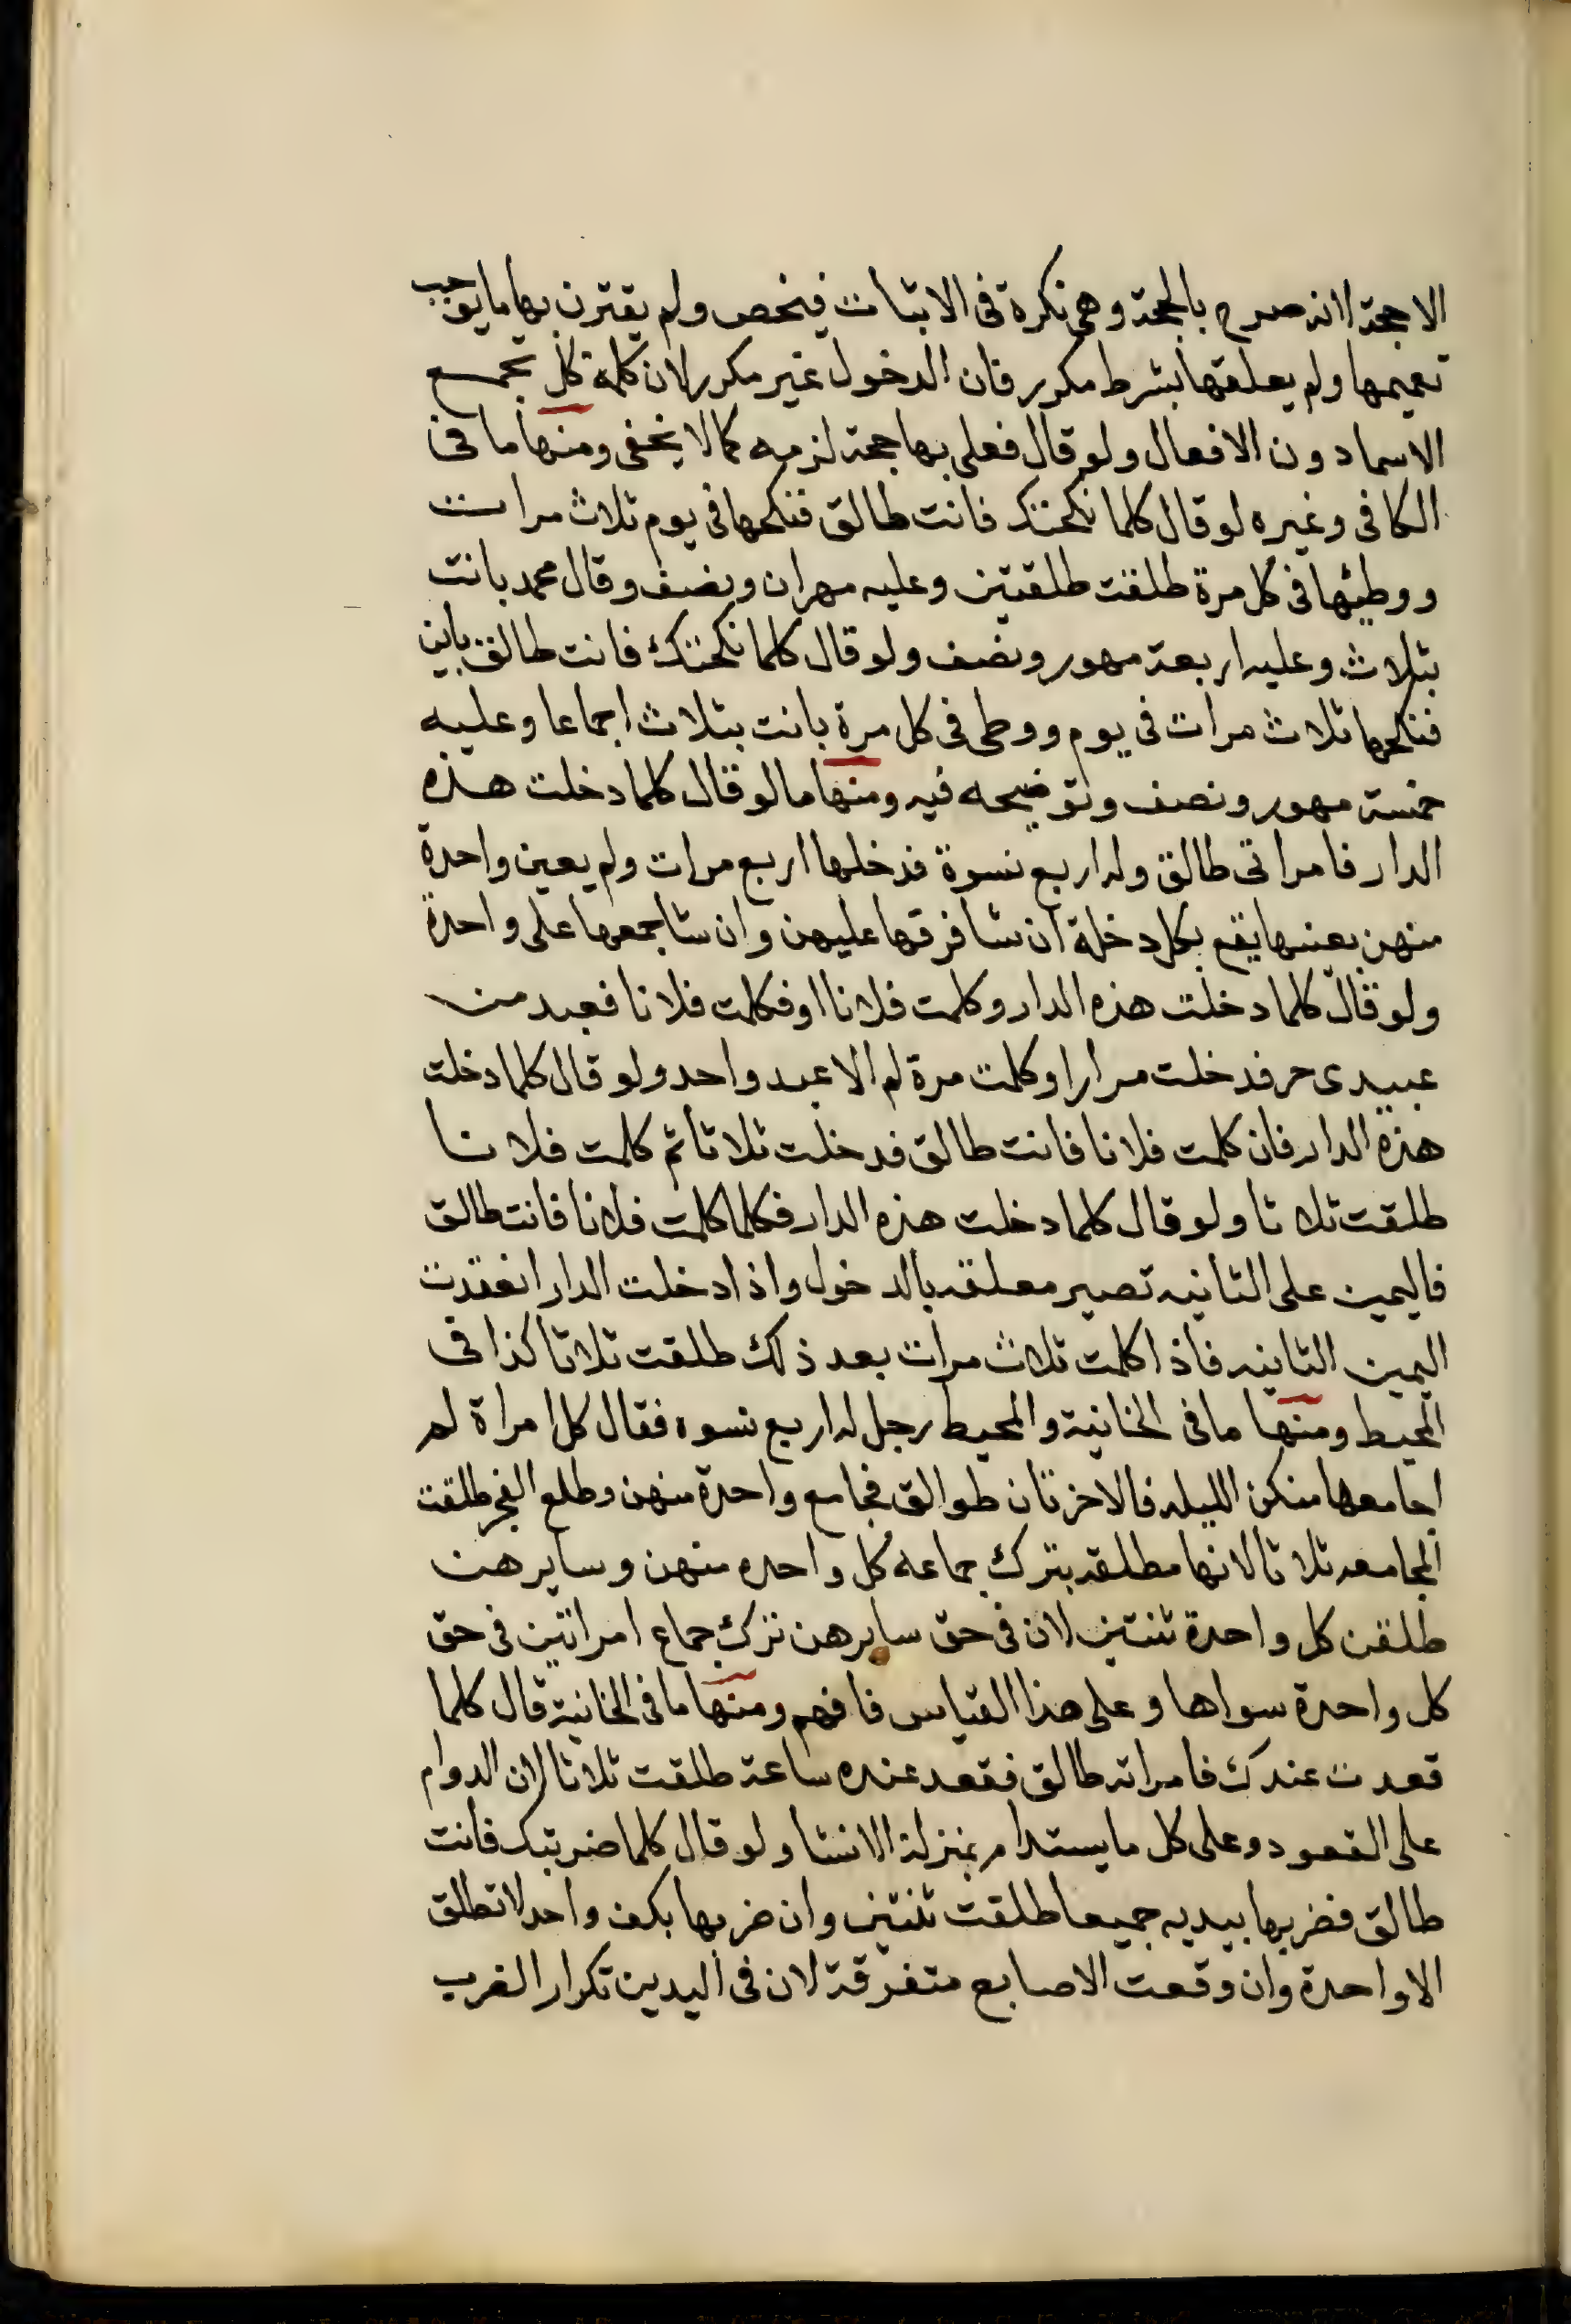 الاحجة لانه صرح بالحجة وهى نكرة فى الاثبات فيخص ولم يقترن بها مايوجب
تعميمها ولم يعلقها بشرط مكرر فان الدخول غير مكرر لان كلمة كل تجمع
الاسما دون الافعال ولو قال فعلى بها حجة لزمه كما لا يخفى ومنها ما فى
الكافى وغيره لو قال كلما نكحتك فانت طالق فنكحها فى يوم ثلاث مرات
ووطيها فى كل مرة طلقت طلقتين وعليه مهران ونصف وقال محمد بانت
بثلاث وعليه اربعة مهور ونصف ولو قال كلما نكحتك فانت طالق باين
فنكحها ثلاث مرات فى يوم ووطى فى كل مرة بانت بثلاث اجماعا وعليه
خمسة مهور ونصف وتوضيحه فيه ومنها مالو قال كلما دخلت هذه
الدار فامراتى طالق وله اربع نسوة فدخلها اربع مرات ولم يعين واحدة
منهن بعينها يقع بكل دخلة ان شا فرقها عليهن وان شا جمعها على واحدة
ولو قال كلما دخلت هذه الدار وكلمت فلانا اوفكلمت فلانا فعبد من
عبيدى حر فدخلت مرارا وكلمت مرة لم الا عبد واحد ولو قال كلما دخلت
هذه الدار فان كلمت فلانا فانت طالق فدخلت ثلاثا ثم كلمت فلانا
طلقت ثلاثا ولو قال كلما دخلت هذه الدار فكلما كلمت فلانا فانت طالق
فاليمين على الثانيه تصير معلقه بالدخول واذا دخلت الدار انعقدت
اليمين الثانيه فاذا كلمت ثلاث مرات بعد ذلك طلقت ثلاثا كذا فى
المحيط ومنها ما فى الخانية والمحيط رجل له اربع نسوه فقال كل امراة لم
اجامعها منكن الليله فالاخرتان طوالق فجامع واحدة منهن وطلع الفجر طلقت
المجامعه ثلاثا لانها مطلقه بترك جماعه كل واحده منهن وسايرهن
طلقن كل واحدة ثنتين لان فى حق سايرهن ترك جماع امراتين فى حق
كل واحدة سواها وعلى هذا القياس فافهم ومنها ما فى الخانية قال كلما
قعدت عندك فامراته طالق فقعد عنده ساعة طلقت ثلاثا لان الدوام
على القعود وعلى كل ما يستدام بمنزلة الانشا ولو قال كلما ضربتك فانت
طالق فضربها بيديه جميعا طلقت ثنتين وان ضربها بكف واحد لا تطلق
الا واحدة وان وقعت الاصابع متفرقة لان فى اليدين تكرار الضرب